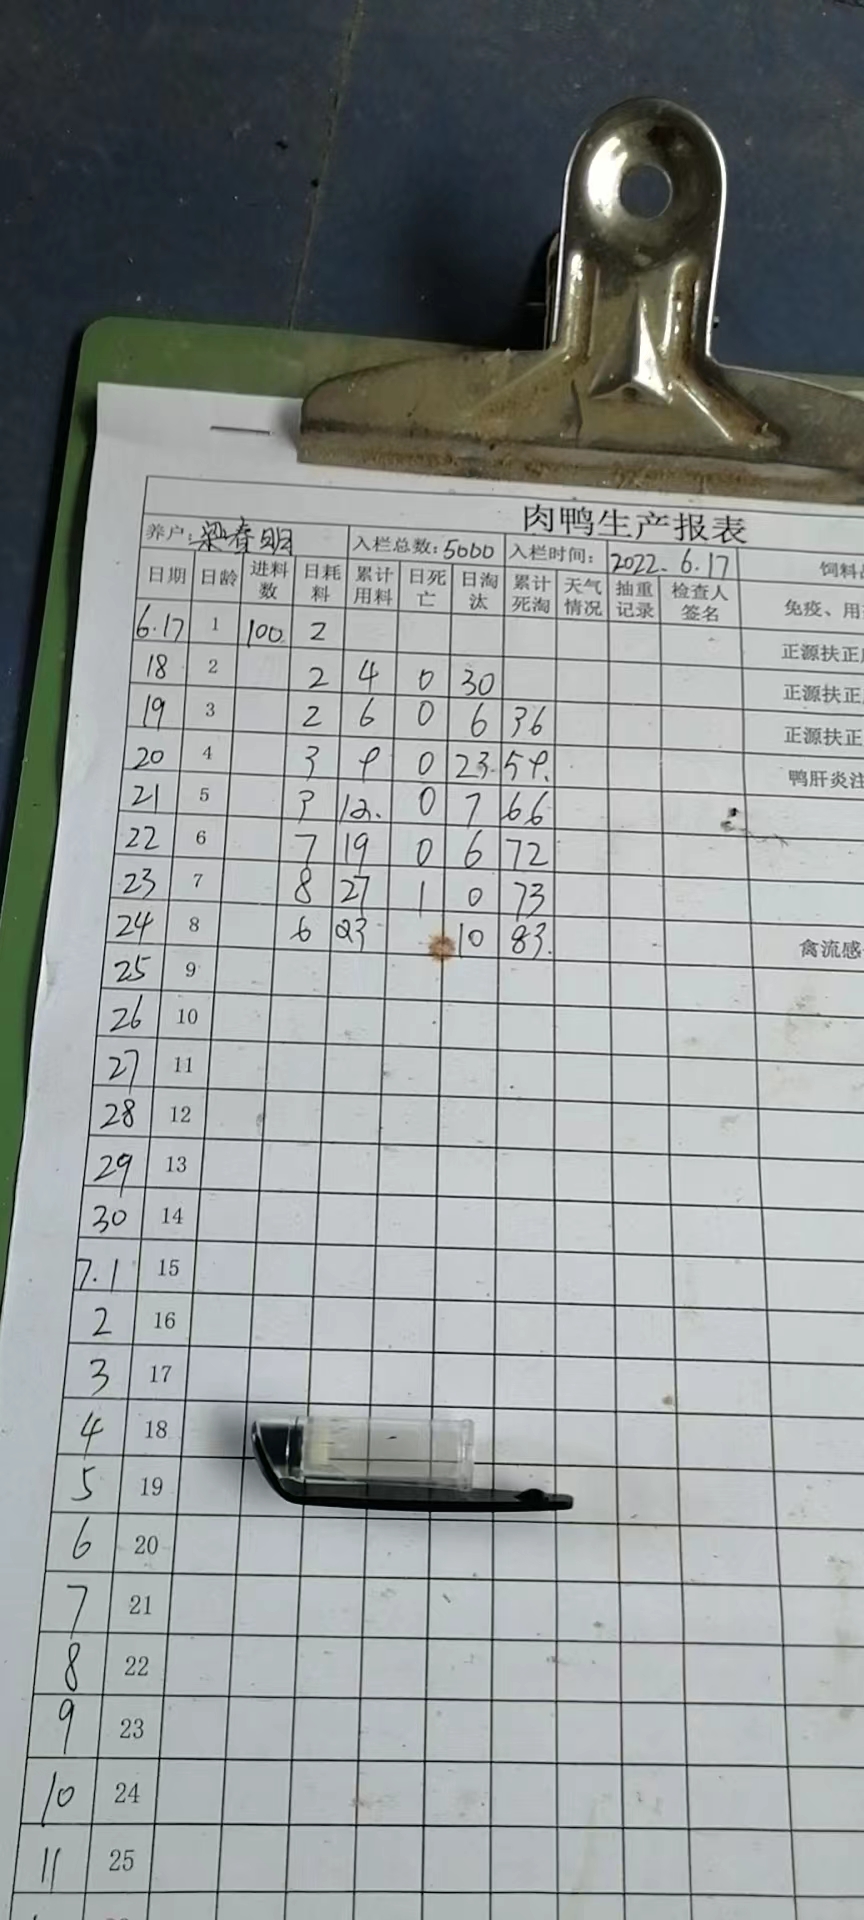 肉鸭生产报表
养户:梁春明 入栏总数:5000 入栏时间: 2022.6.17 饲料
日期 日龄 进料数 日耗料 累计用料 日死亡 日淘汰 累计死淘 天气情况 抽重记录 检查人签名 免疫、用
6.17 1 100 2 正源扶正
18 2 2 4 0 30 正源扶正
19 3 2 6 0 6 36 正源扶正
20 4 3 9 0 23. 59. 鸭肝炎注
21 5 3 12. 0 7 66
22 6 7 19 0 6 72
23 7 8 27 1 0 73
24 8 6 23 10 83. 禽流感
25 9
26 10
27 11
28 12
29 13
30 14
7.1 15
2 16
3 17
4 18
5 19
6 20
7 21
8 22
9 23
10 24
11 25